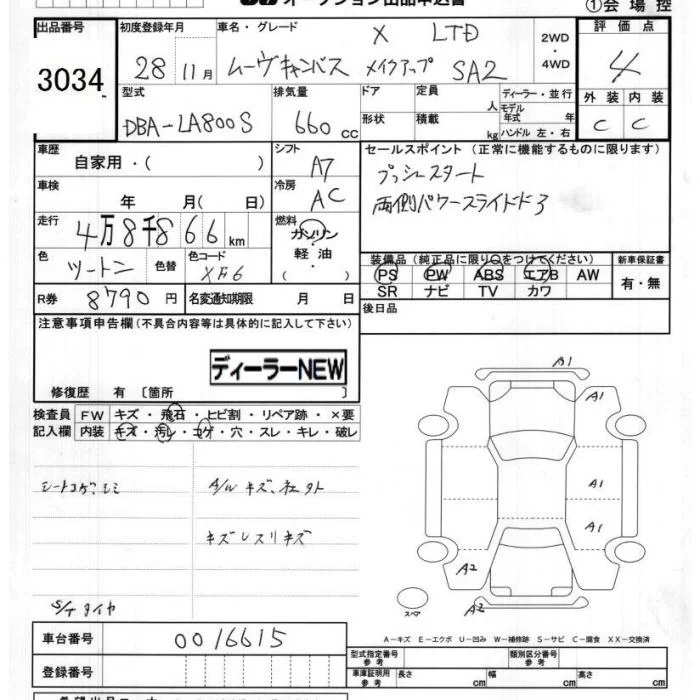 オークション出品申込書 ①会場控
出品番号 3034
初度登録年月 28年 11月
車名・グレード X LTD
ムーヴキャンバス メイクアップ SA2
2WD・4WD
評価点 4
外装 C 内装 C
型式 DBA-LA800S
排気量 660 cc
ドア 形状
定員 人 積載 kg
ディーラー・並行
モデル年式 年
ハンドル 左・右
車歴 自家用・( )
シフト A7
車検 年 月( 日)
冷房 AC
走行 4万8千866 km
燃料 ガソリン・軽油・( )
色 ツートン 色替
色コード XF6
R券 8790円
名変通知期限 月 日
セールスポイント (正常に機能するものに限ります)
プッシュスタート
両側パワースライドドア
装備品 (純正品に限り○をつけてください)
PS PW ABS エアB AW
SR ナビ TV カワ
新車保証書 有・無
後日品
注意事項申告欄(不具合内容等は具体的に記入して下さい)
ディーラーNEW
修復歴 有 〔箇所 〕
検査員記入欄
FW キズ・飛石・ヒビ割・リペア跡・×要
内装 キズ・汚レ・コゲ・穴・スレ・キレ・破レ
シートコゲ、シミ
A/W キズ、
S/T タイヤ
A1
A1
A1
A1
A2
A2
スペア
A-キズ E-エクボ U-凹み W-補修跡 S-サビ C-腐食 XX-交換済
車台番号 0016615
登録番号
型式指定番号 参考
類別区分番号 参考
車庫証明用 参考 長さ cm 幅 cm 高さ cm